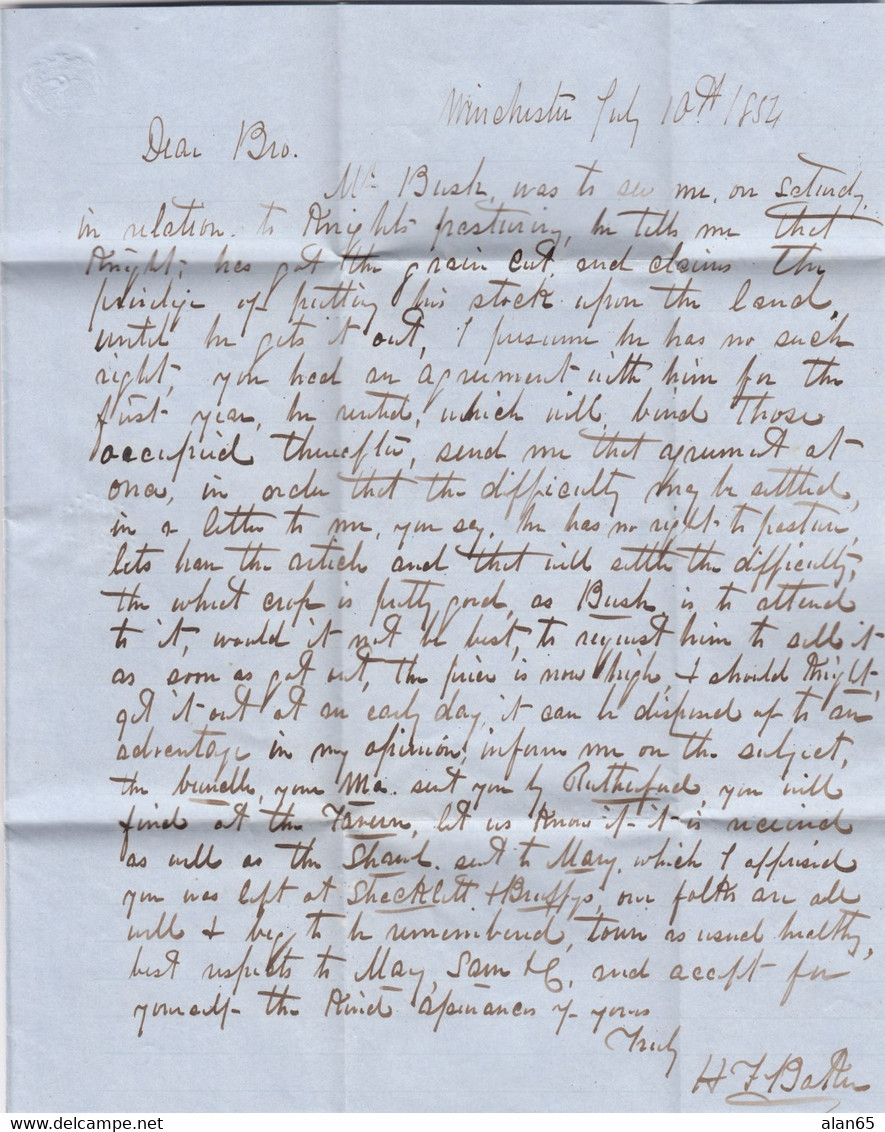 Winchester July 10th 1854
Dear Bro.
Mr Bush, was to see me, on Saturdy,
in relation to Knights pasturing, he tells me that
Knight, has got the grain cut, and claims the
priviledge of putting his stock upon the land,
until he gets it out, I presume he has no such
right, you had an agreement with him for the
first year, he rented, which will bind those
occupied thereafter, send me that agreement at
once, in order that the difficulty may be settled,
in a letter to me, you say, he has no right to pasture,
lets have the article and that will settle the difficulty,
the wheat crop is pretty good, as Bush is to attend
to it, would it not be best, to request him to sell it
as soon as got out, the price is now high, & should Knight,
get it out at an early day, it can be disposed of to an
advantage in my opinion, inform me on the subject,
the bundle, your Ma. sent you by Rutherford, you will
find at the Tavern, let us know if it is received
as well as the Shawl sent to Mary, which I apprised
you was left at & our folks are all
well & beg to be remembered, town as usual healthy,
best respects to Mary, Sam &C, and accept for
yourself the kind of yours
Truly
H F Baker
alan65